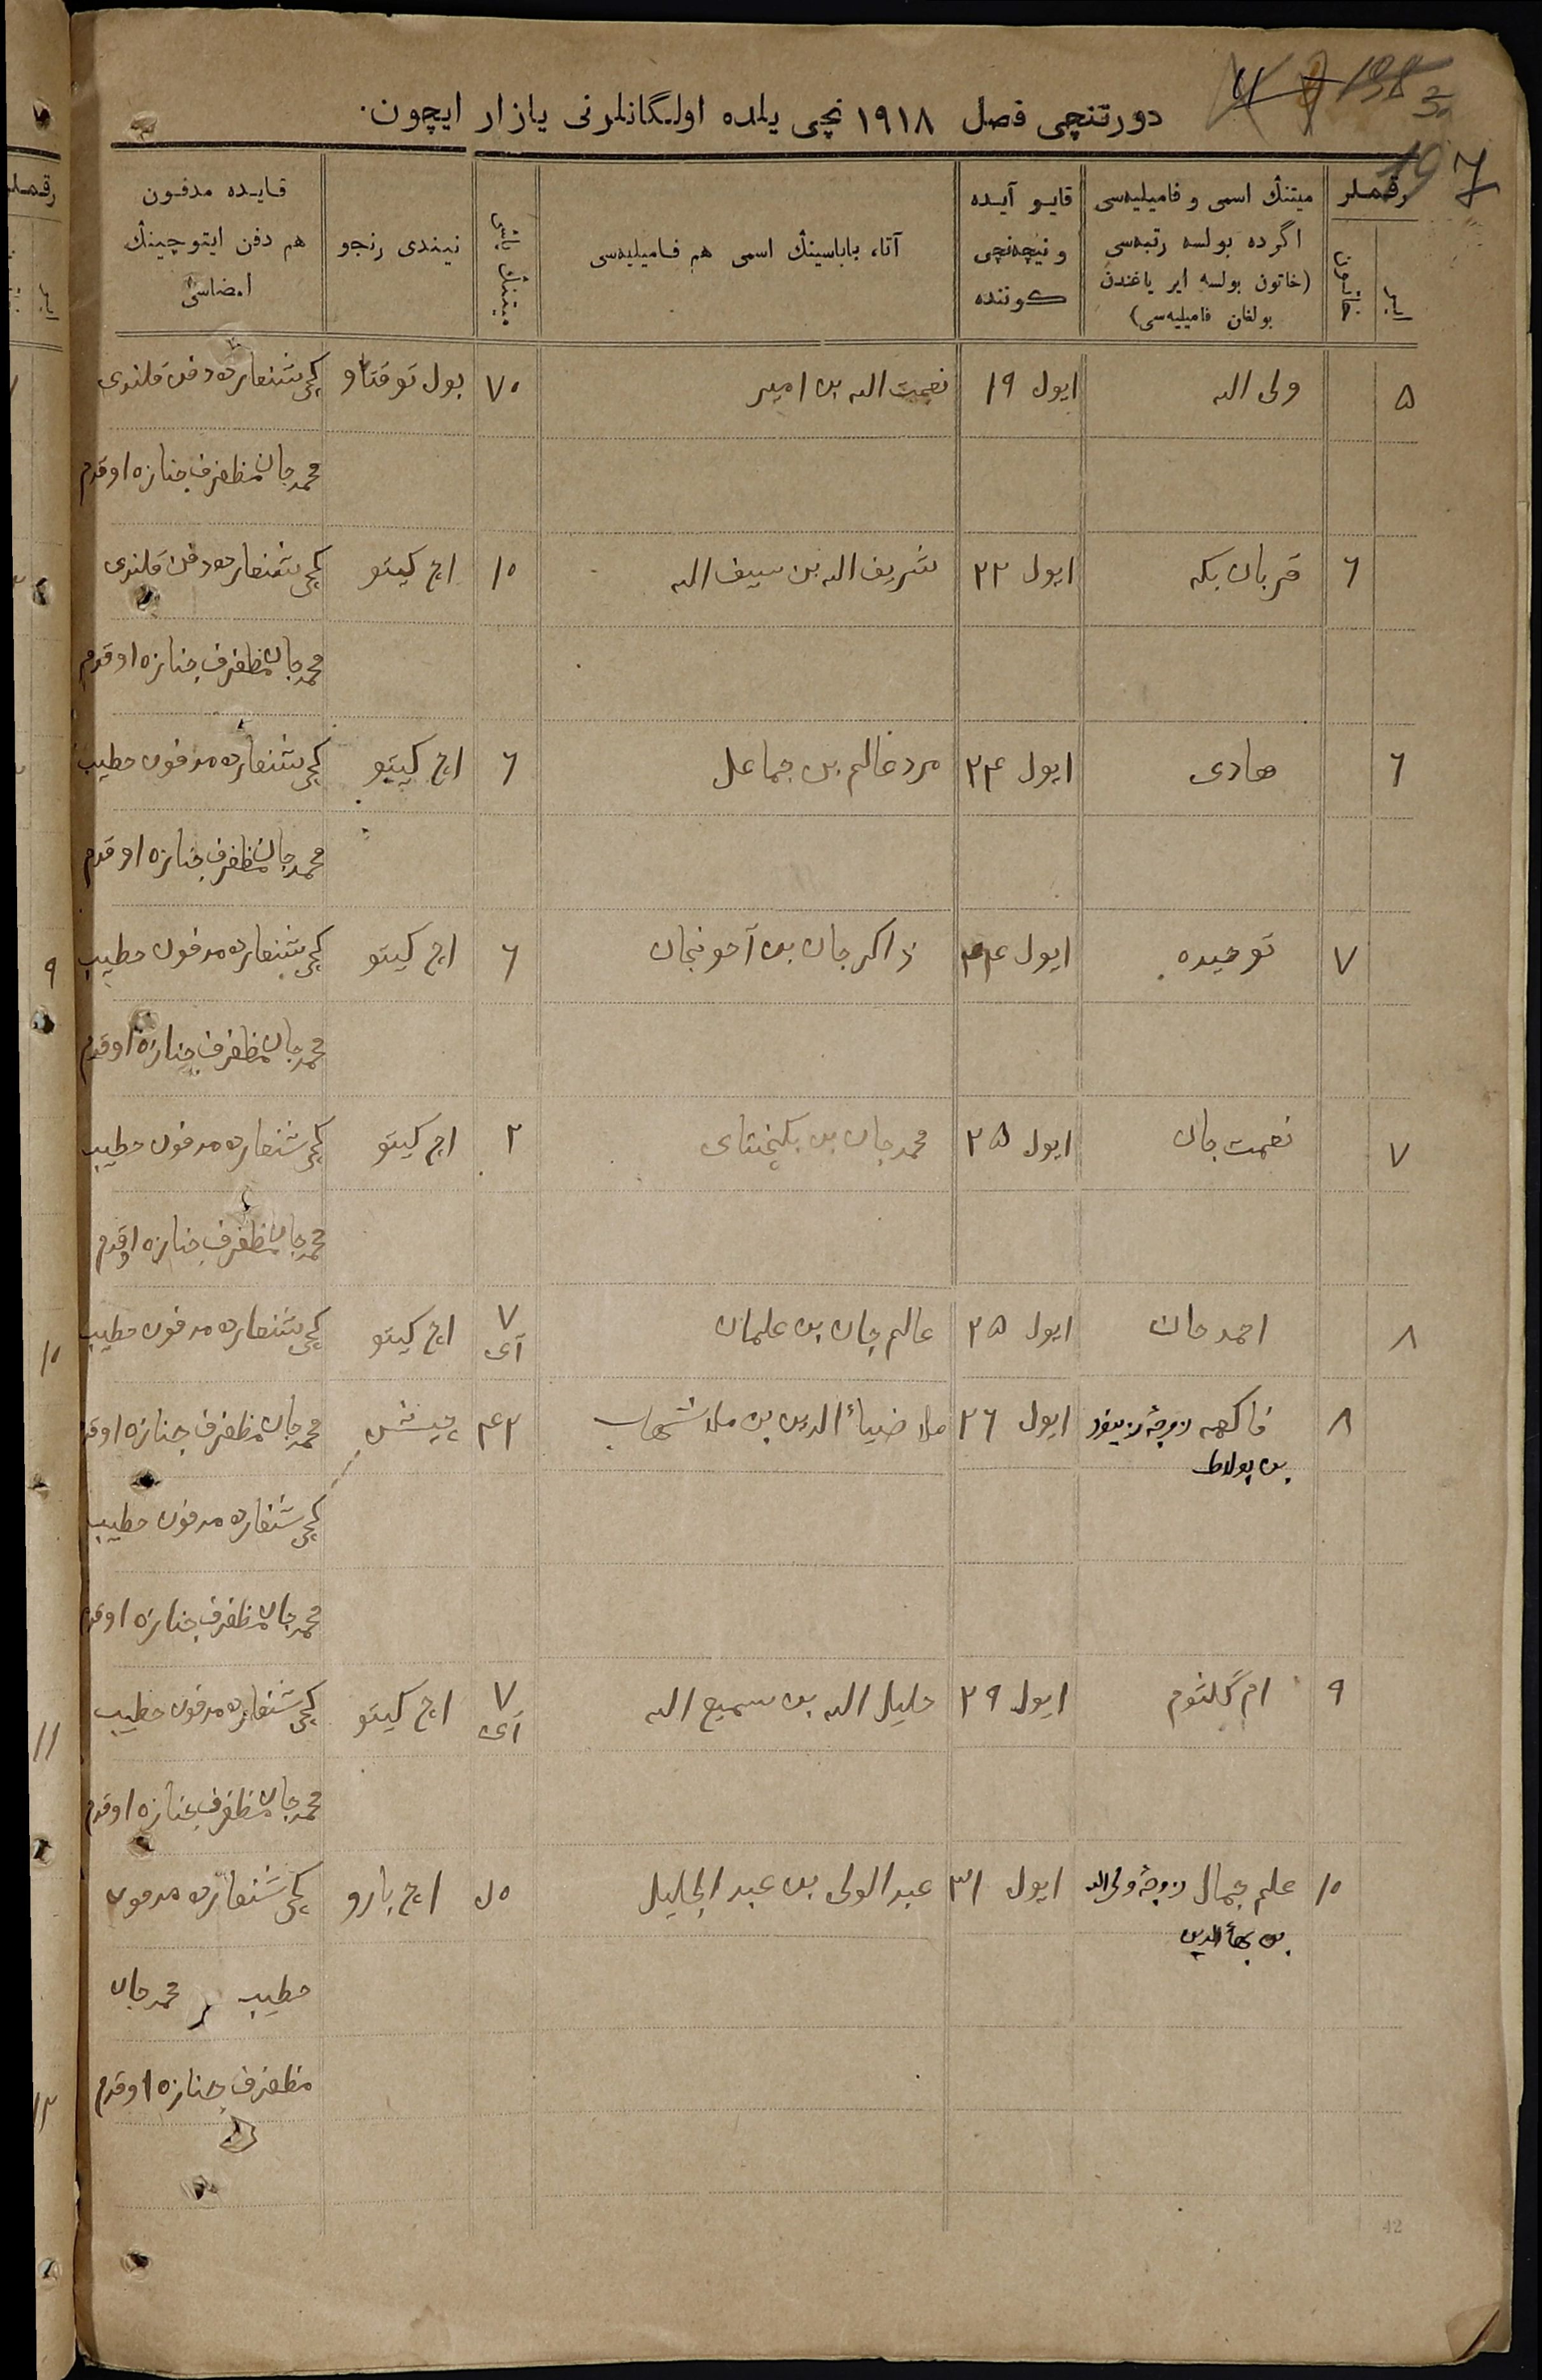 دورتنچی فصل ۱۹۱۸ نچی یلده اولگانلرنی یازار ایچون.
197
رقملر
ایر
خاتون
میتنڭ اسمی و فامیلیەسی اگرده بولسه رتبەسی (خاتون بولسه ایر یاغندن بولغان فامیلیەسی)
قایو آیده و نیچەنچی كوننده
آتا، باباسینڭ اسمی هم فامیلیەسی
میتنڭ یاشی
نیندی رنجو
قایده مدفون هم دفن ایتوچینڭ امضاسی
۵ ولی الله ایول ۱۹ نعمت الله بن امیر ۷۰ بول توقتاو كچی شنغارده دفن قلندی
محمدجان مظفرف جنازه اوقدم
۶ قربان بكه ایول ۲۲ شریف الله بن سیف الله ۱۰ اچ كیتو كچی شنغارده دفن قلندی
محمدجان مظفرف جنازه اوقدم
۶ هادی ایول ۲۴ مردغالم بن جماعل ۶ اچ كیتو كچی شنغارده مدفون خطیب
محمدجان مظفرف جنازه اوقدم
۷ توحیده ایول ۲۴ ذاكرجان بن آخونجان ۶ اچ كیتو كچی شنغارده مدفون خطیب
محمدجان مظفرف جنازه اوقدم
۷ نعمت جان ایول ۲۵ محمدجان بن ۲ اچ كیتو كچی شنغارده مدفون خطیب
محمدجان مظفرف جنازه اوقدم
۸ احمدجان ایول ۲۵ عالم جان بن علمان ۷ آی اچ كیتو كچی شنغارده مدفون خطیب
۸ فاكهه زوجهٔ ایول ۲۶ ملا ضیاٴالدین بن ملا شهاب ۴۲ چیتش محمدجان مظفرف جنازه اوقدم
بن پولاط
كچی شنغارده مدفون خطیب
محمدجان مظفرف جنازه اوقدم
۹ ام گلثوم ایول ۲۹ خلیل الله بن سمیع الله ۷ آی اچ كیتو كچی شنغارده مدفون خطیب
محمدجان مظفرف جنازه اوقدم
۱۰ علم جمال زوجهٔ ولی الله ایول ۳۱ عبدالولی بن عبدالجلیل ۵۰ اچ بارو كچی شنغارده مدفون
بن بهاٴالدین
خطیب محمدجان
مظفرف جنازه اوقدم
42